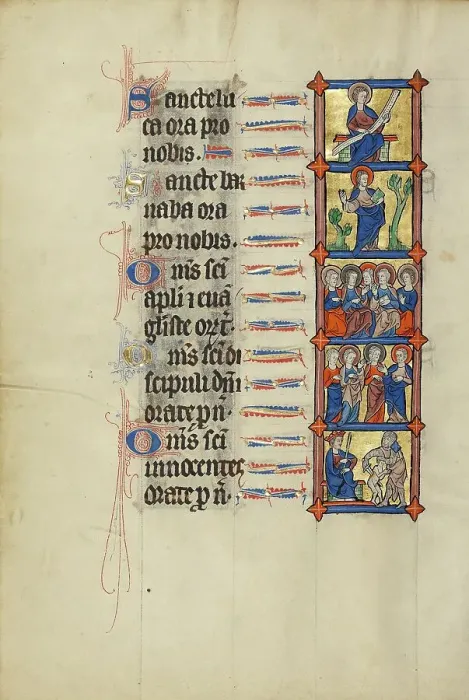 Sancte lu
ca ora pro
nobis.
Sancte bar
naba ora
pro nobis.
Om̄s sc̄i
apl̄i ⁊ euā
gl̄iste or̄t.
Om̄s sc̄i di
scipuli dn̄i
orate p n̄.
Om̄s sc̄i
innocentes
orate p n̄.